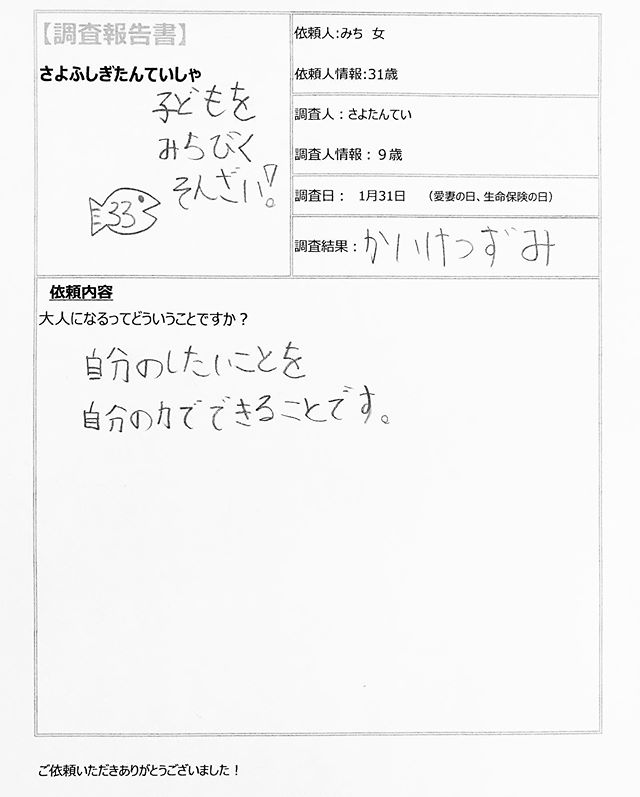 【調査報告書】
さよふしぎたんていしゃ
子どもを
みちびく
そんざい!
33
依頼人:みち 女
依頼人情報:31歳
調査人：さよたんてい
調査人情報：９歳
調査日： 1月31日 （愛妻の日、生命保険の日）
調査結果：かいけつずみ
依頼内容
大人になるってどういうことですか？
自分のしたいことを
自分の力でできることです。
ご依頼いただきありがとうございました！